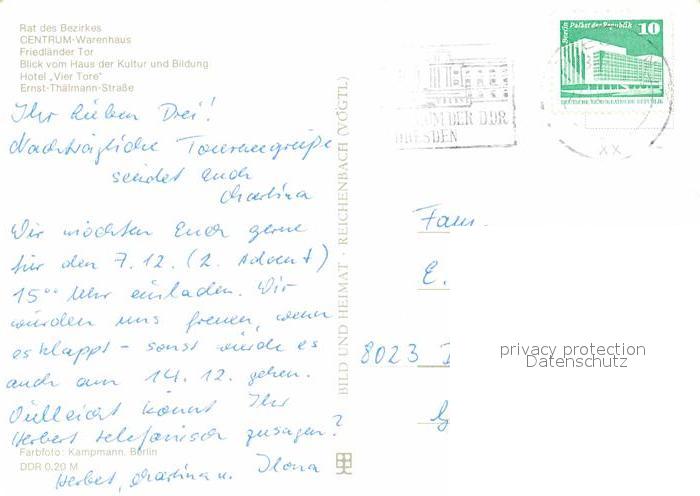 Rat des Bezirkes
CENTRUM-Warenhaus
Friedländer Tor
Blick vom Haus der Kultur und Bildung
Hotel „Vier Tore"
Ernst-Thälmann-Straße
Ihr lieben Drei!
Nachträgliche Tourengrüße
sendet Euch
Martina
Wir möchten Euch gerne
für den 7.12. (2. Advent)
15⁰⁰ Uhr einladen. Wir
würden uns freuen, wenn
es klappt - sonst würde es
auch am 14.12. gehen.
Vielleicht könnt Ihr
Herbert telefonisch zusagen?
Herbert, Martina u. Ilona
Farbfoto: Kampmann, Berlin
DDR 0,20 M
BILD UND HEIMAT · REICHENBACH (VOGTL)
UM DER DDR
DRESDEN
Berlin Palast der Republik 10
DEUTSCHE DEMOKRATISCHE REPUBLIK
XX
Fam.
E.
8023
privacy protection
Datenschutz